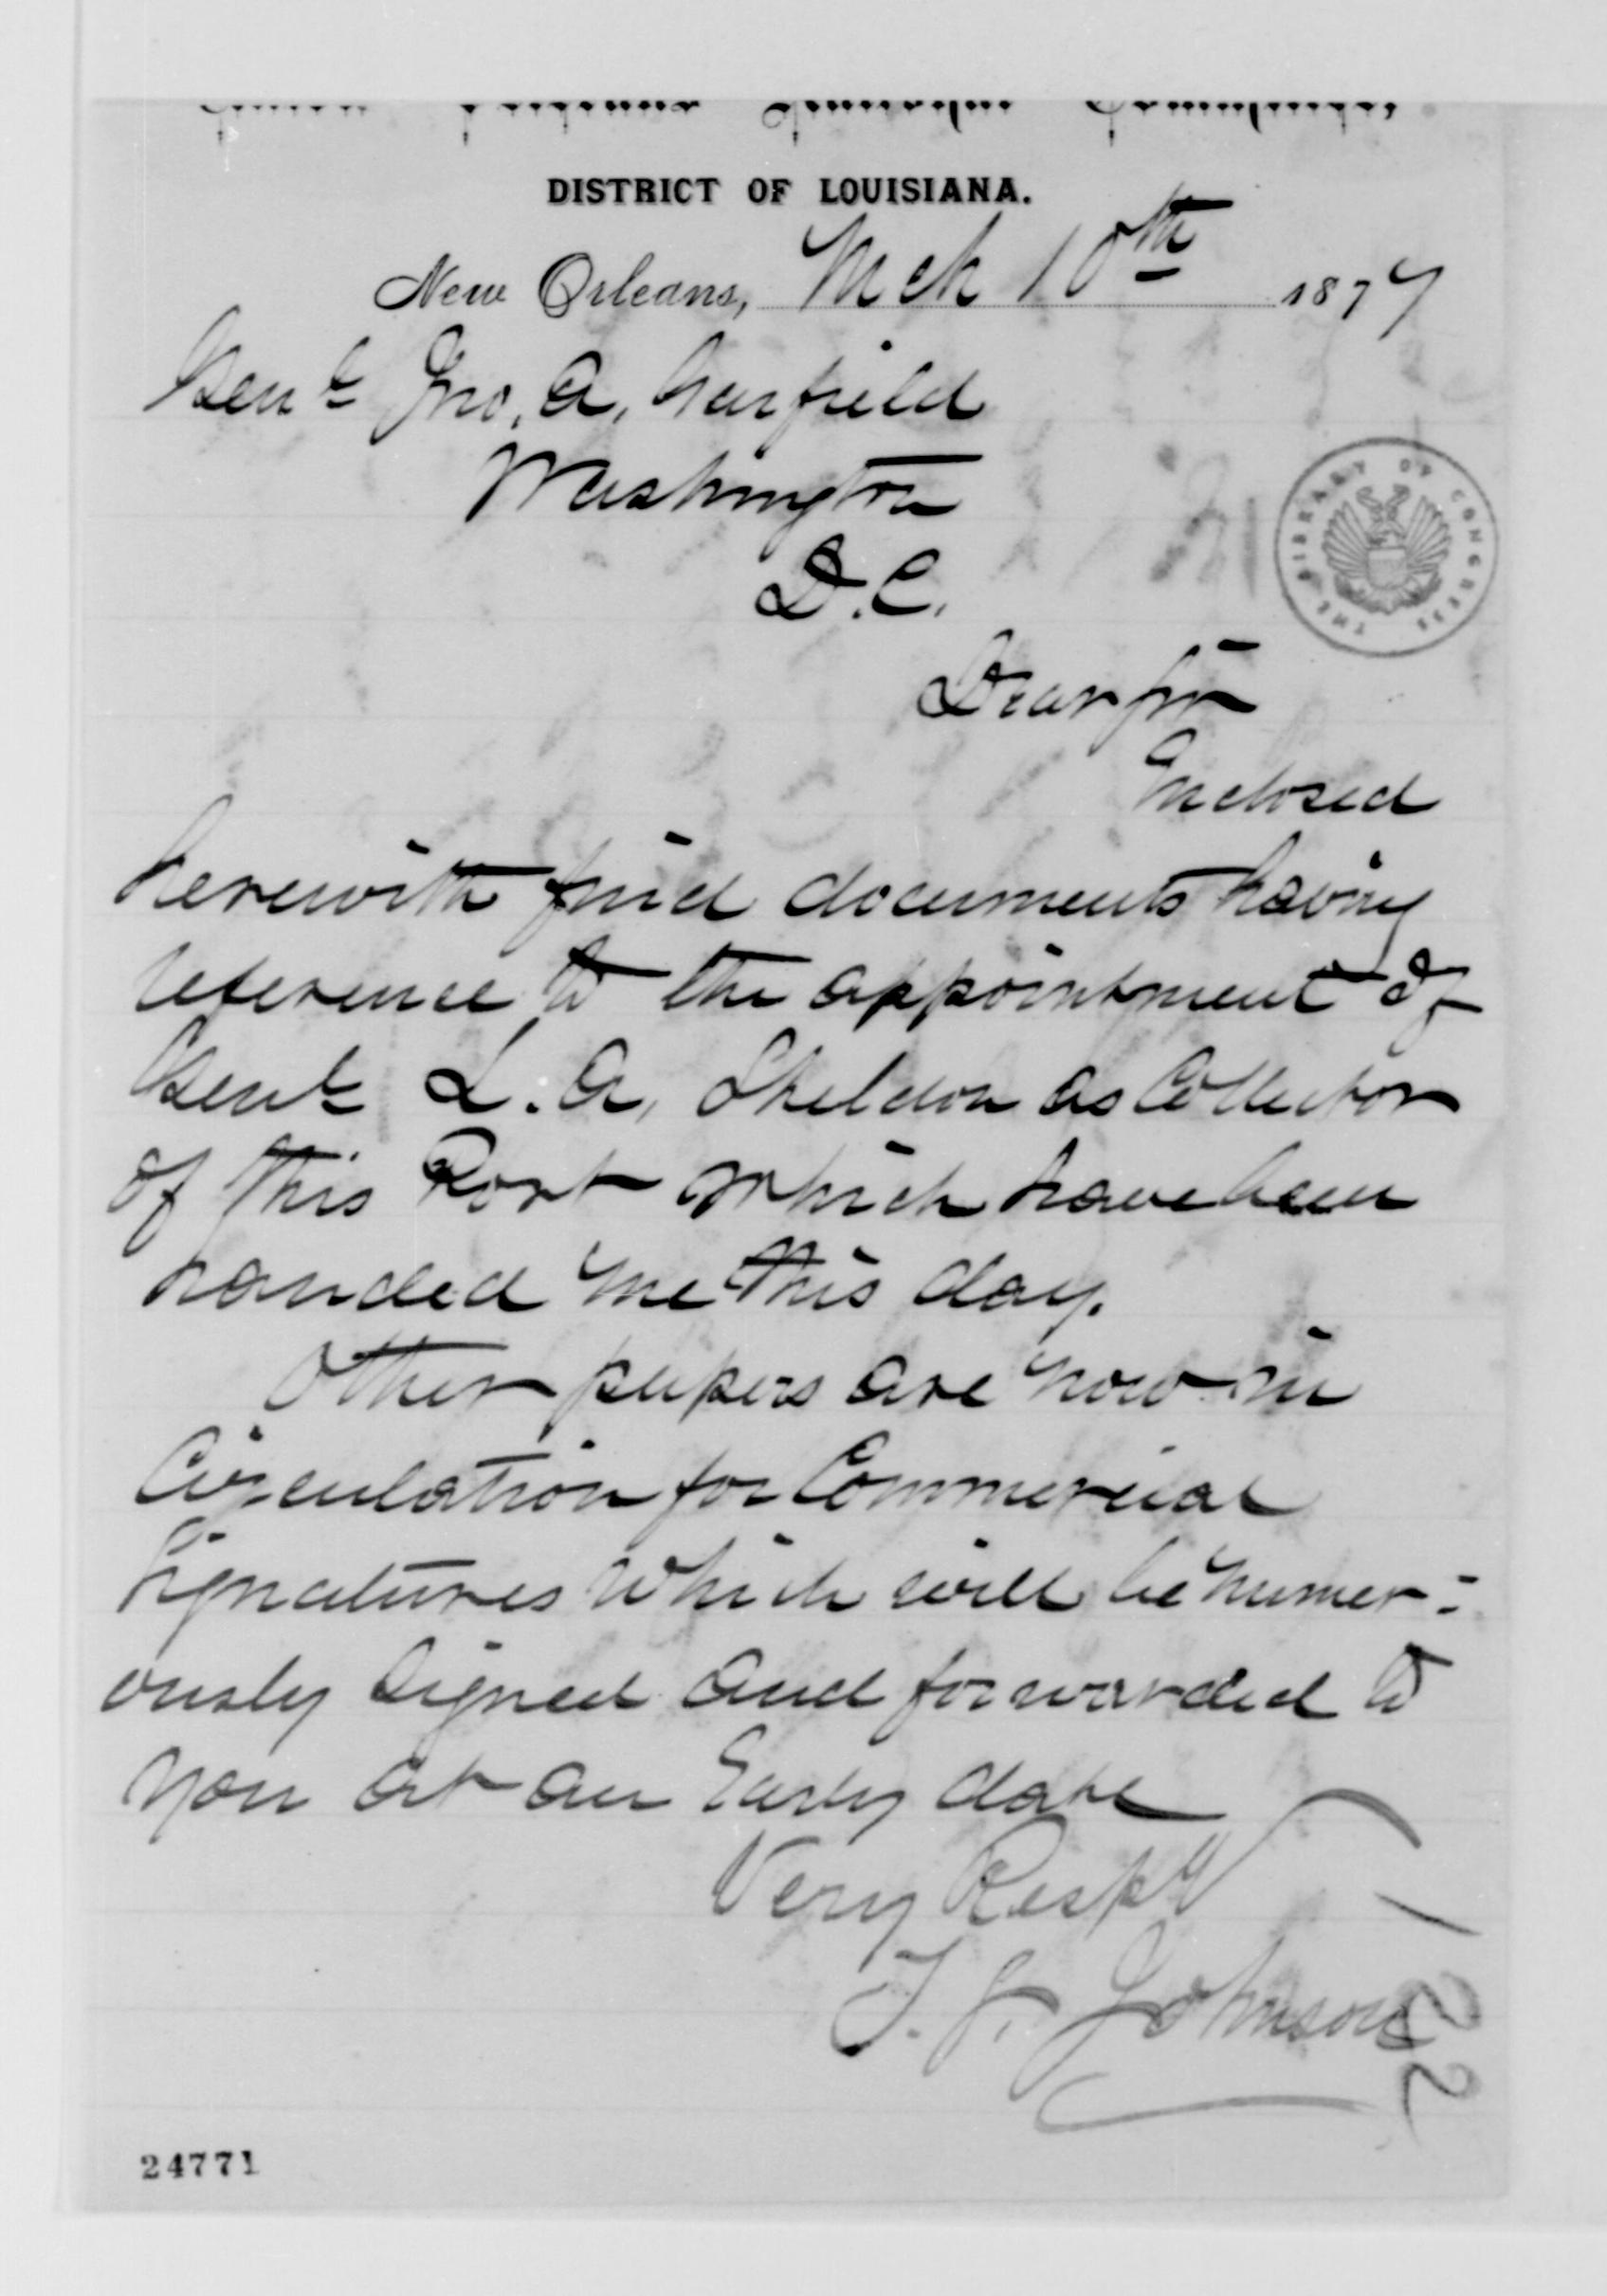 DISTRICT OF LOUISIANA.
New Orleans, Mch 10th 1877
Genl Jno, A, Garfield
Washington
D.C.
Dear Sir
Enclosed
herewith find documents having
reference to the appointment of
Genl L. A, Sheldon as Collector
of this Port which have been
handed me this day.
Other papers are now in
Circulation for Commercial
signatures which will be numer=
ously signed and forwarded to
you at an Early date
Very Respy
T. J. Johnson
122
THE LIBRARY OF CONGRESS
24771